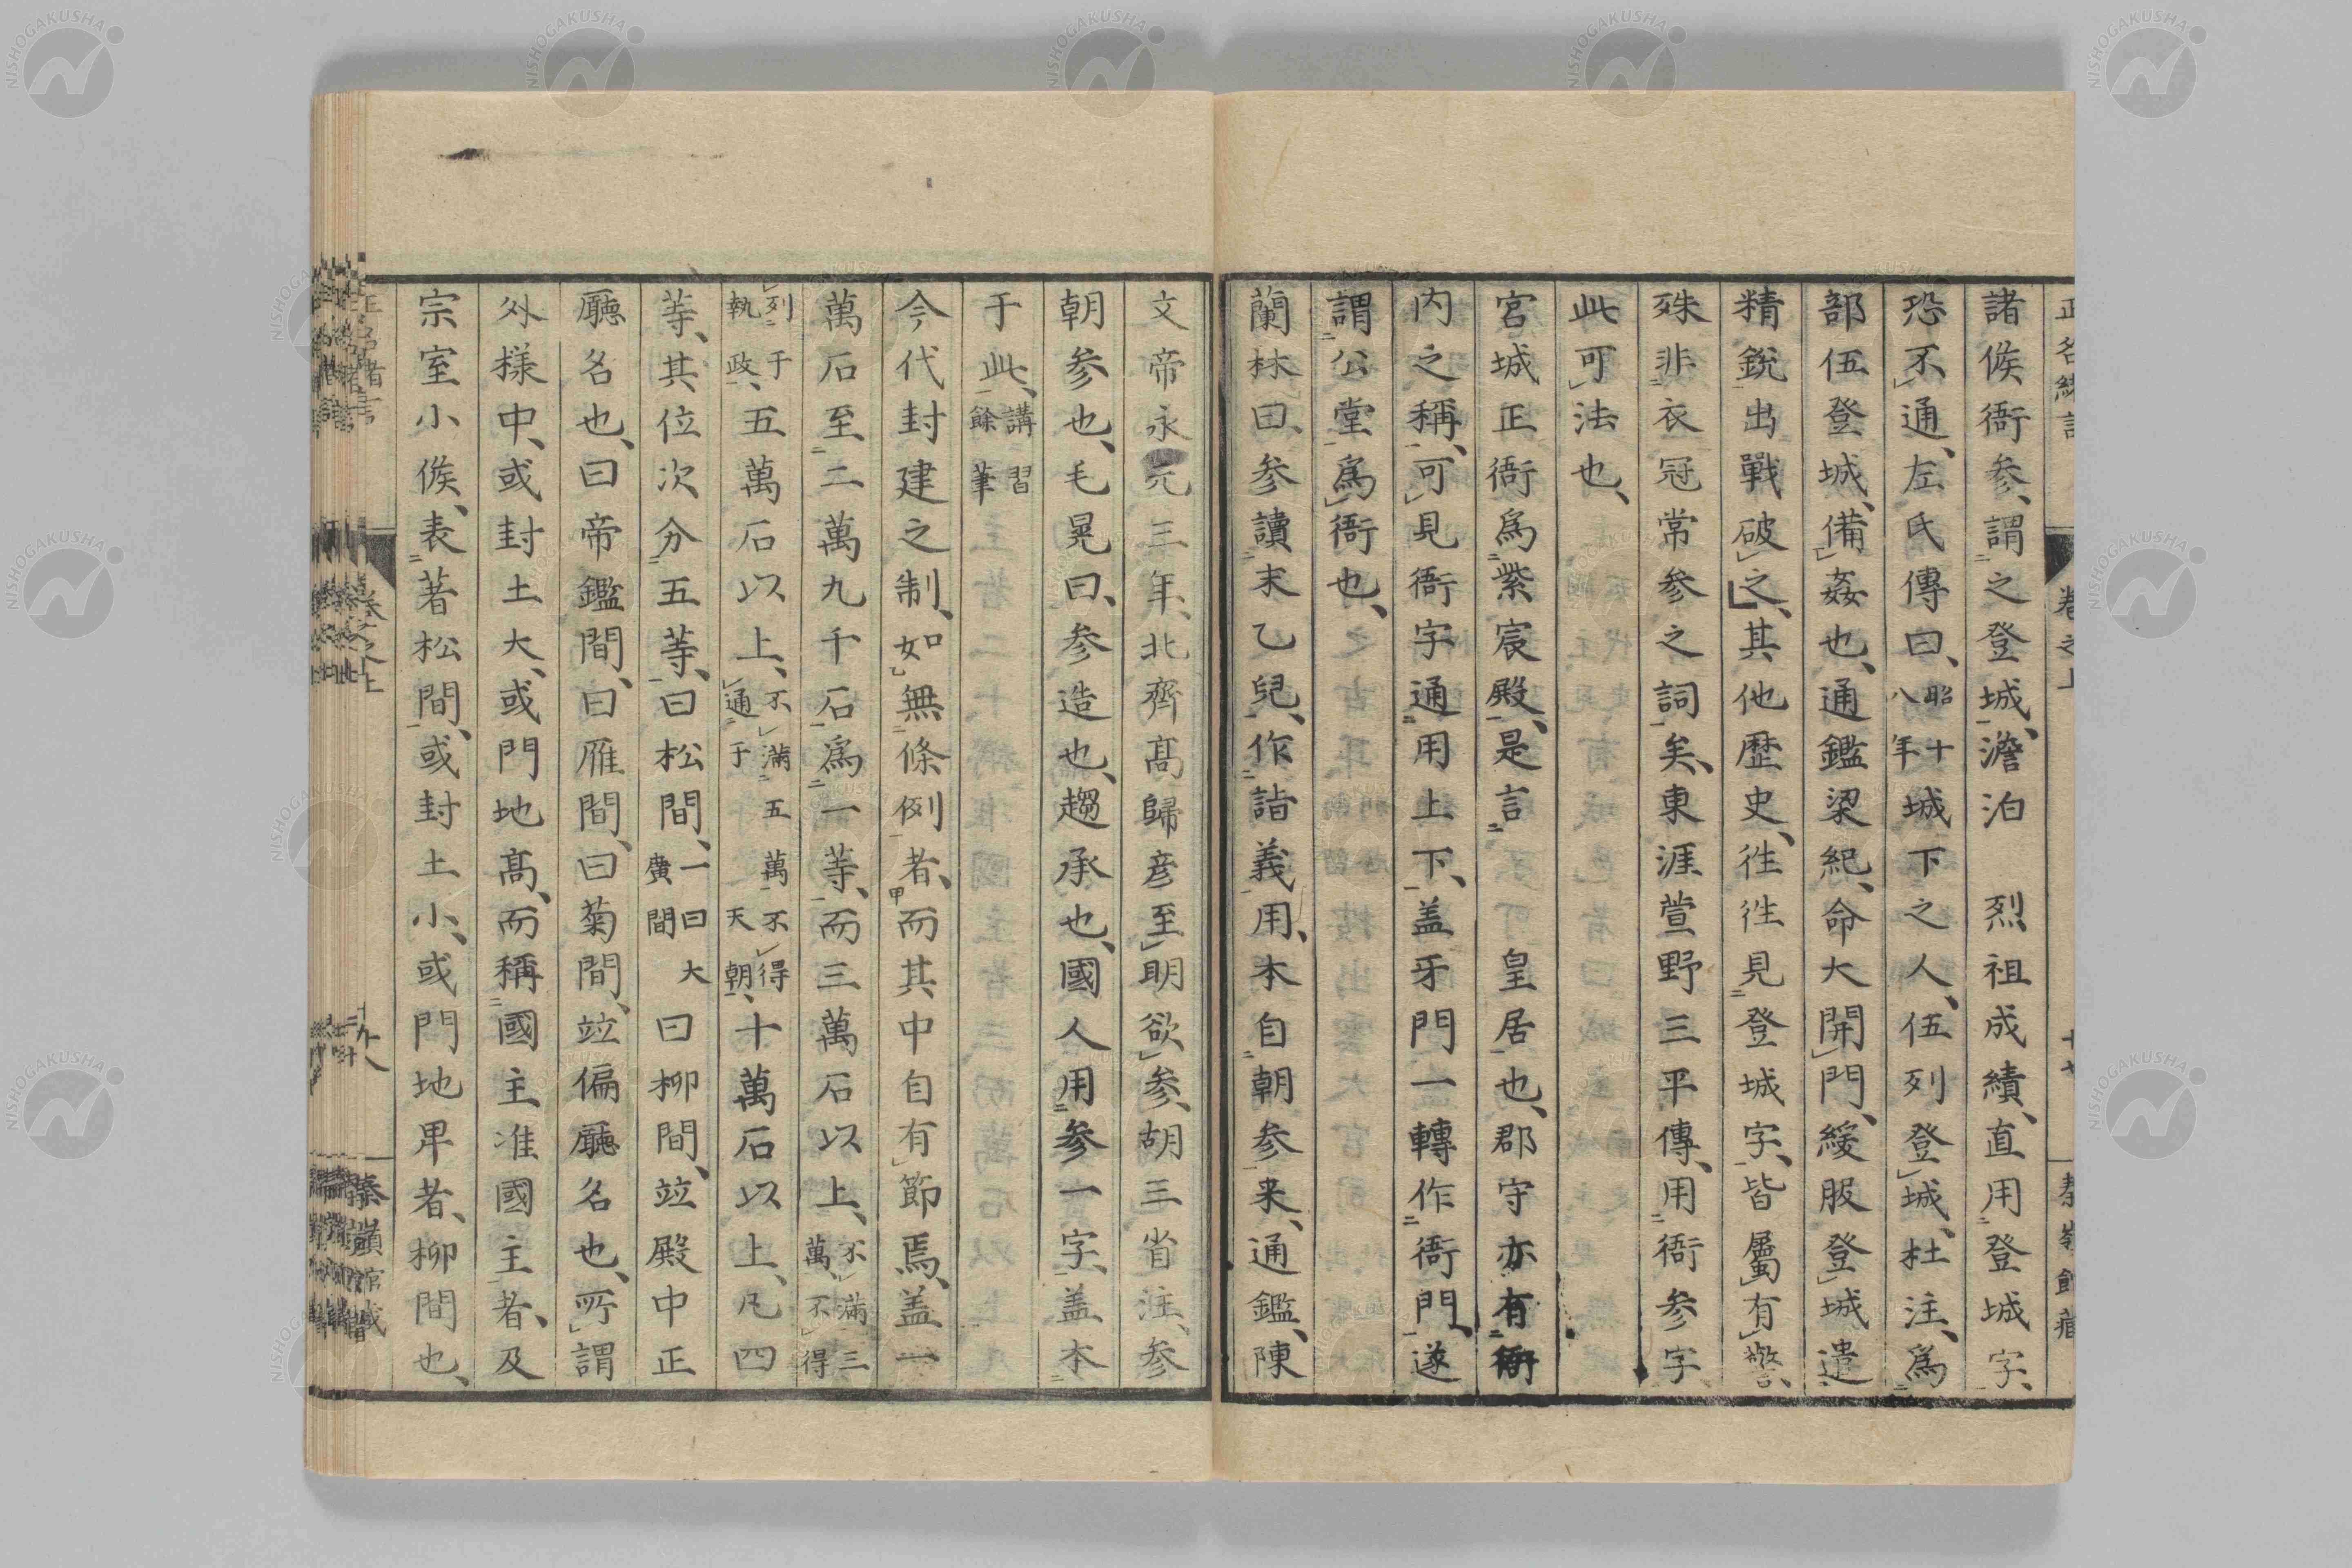 諸侯衙参、謂之登城、澹泊　烈祖成績、直用登城字、
恐不通、左氏傳曰、昭十八年城下之人、伍列登城、杜注、爲
部伍登城、備姦也、通鑑梁紀、命大開門、緩服登城遣
精鋭出戰破之、其他歴史、徃徃見登城字、皆屬有警、
殊非衣冠常参之詞矣、東涯萱野三平傳、用衙参字
此可法也、
宮城正衙爲紫宸殿、是言　皇居也、郡守亦有衙
内之稱、可見衙字通用上下、盖牙門一轉作衙門、遂
謂公堂爲衙也、
蘭林曰、参讀末乙兒、作詣義用、本自朝参来、通鑑、陳
文帝永元三年、北齊髙歸彦至明欲参、胡三省注、参
朝参也、毛晃曰、参造也、趨承也、國人用参一字、盖本
于此、講習餘筆
今代封建之制、如無條例者、而其中自有節焉、盖一
萬石至二萬九千石爲一等、而三萬石以上、不滿三萬、不得
列于執政、五萬石以上、不滿五萬不得通于天朝、十萬石以上、凡四
等、其位次分五等、曰松間、一曰大廣間曰柳間、竝殿中正
廳名也、曰帝鑑間、曰雁間、曰菊間、竝偏廳名也、所謂
外様中、或封土大、或門地髙、而稱國主、准國主者、及
宗室小侯、表著松間、或封土小、或門地卑者、柳間也、
卷之上